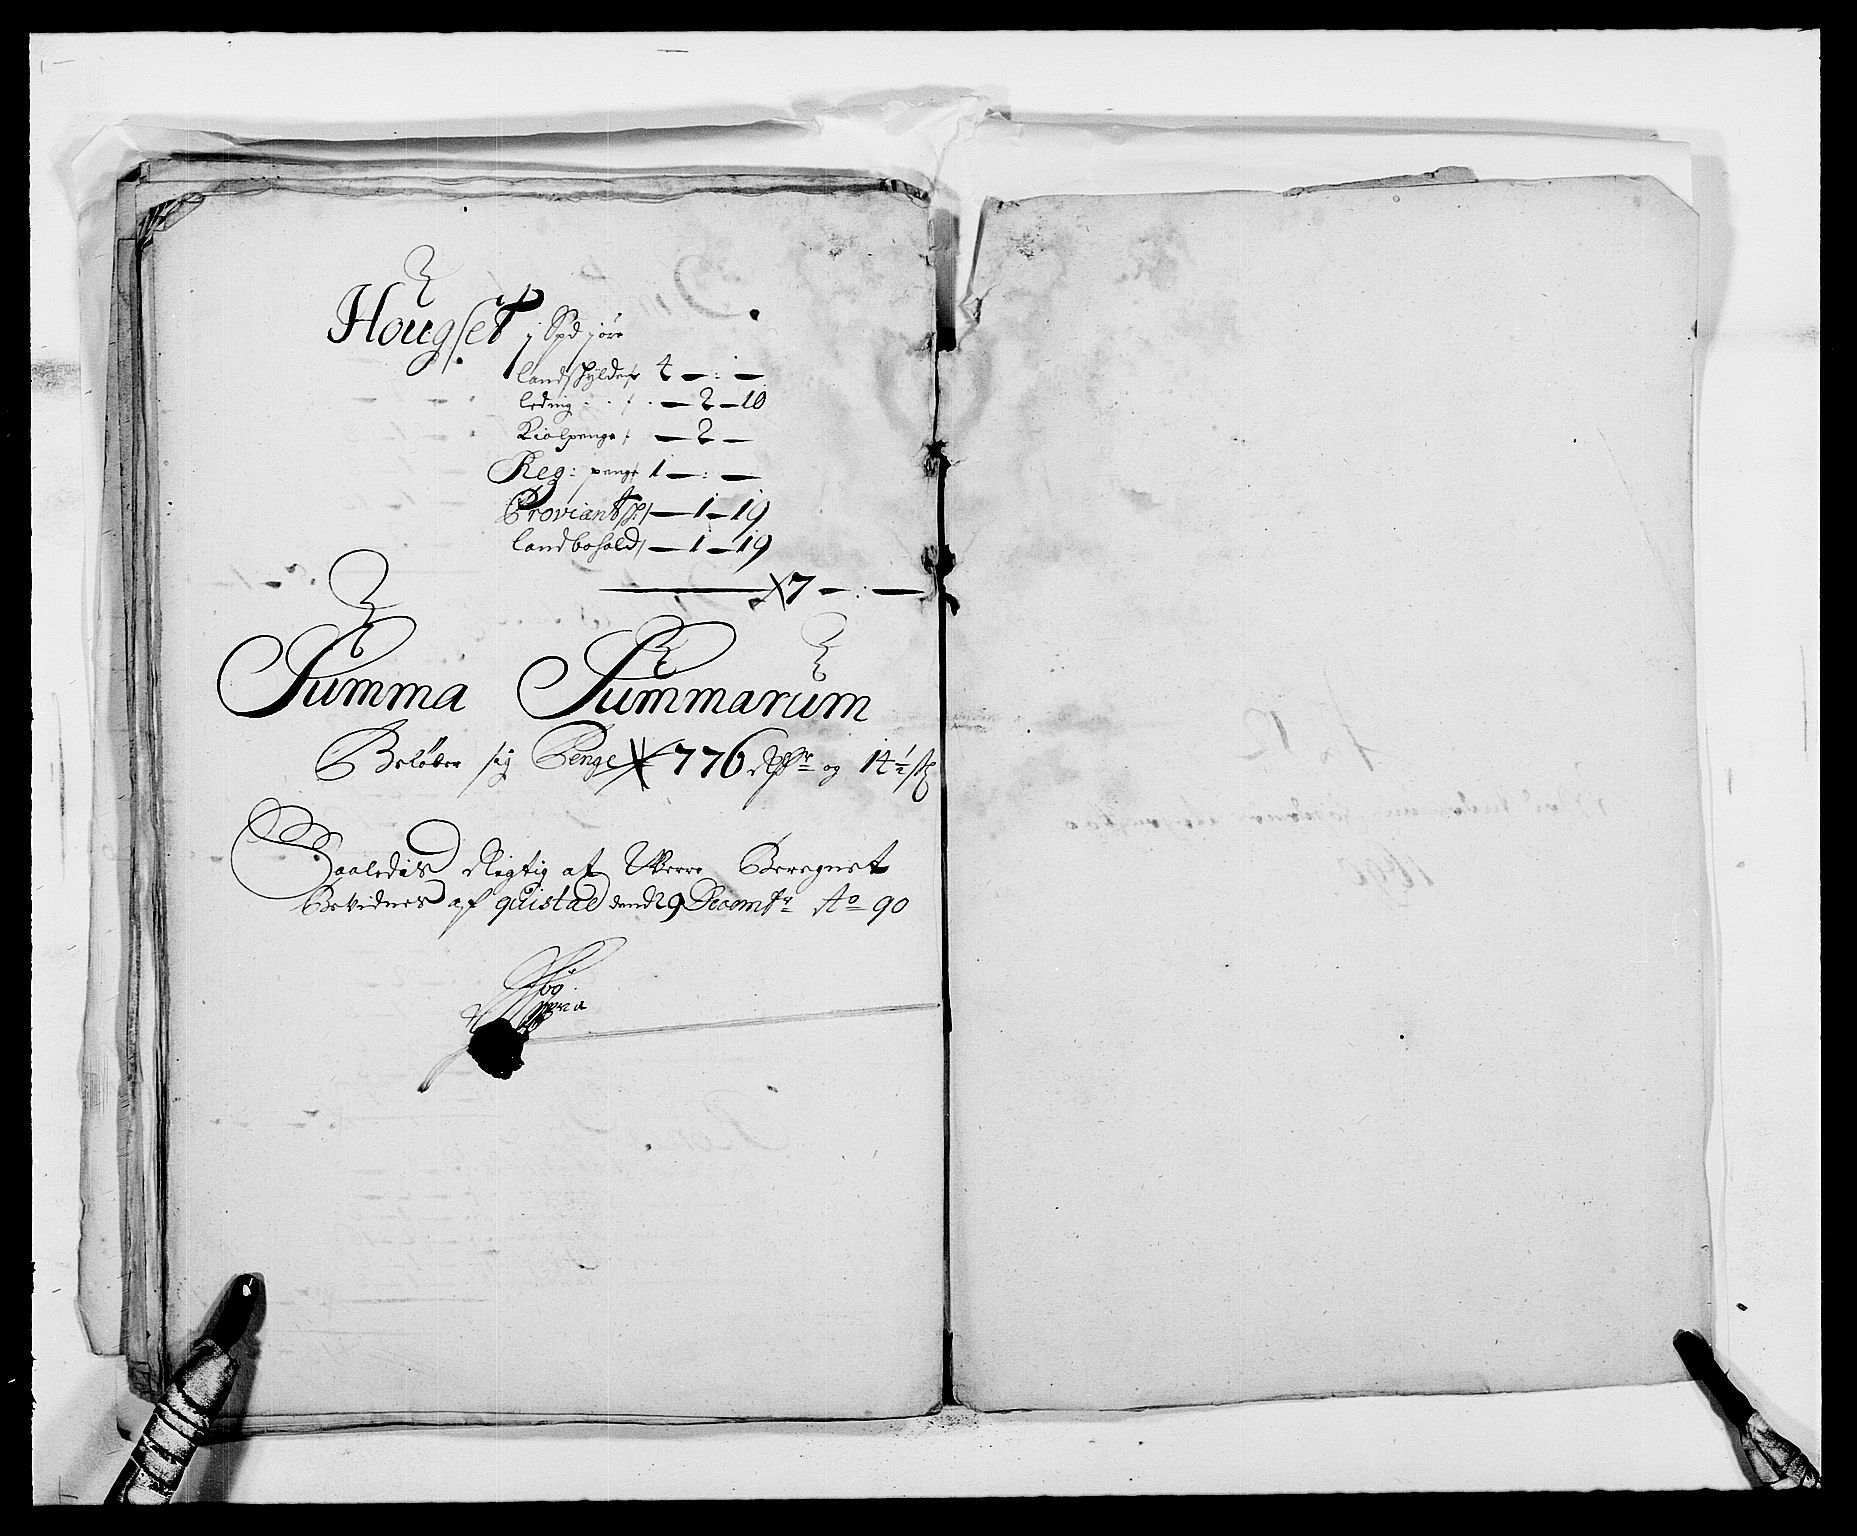 Hougset j Spd jøre
landskylde 4 – : –
leding – 2 – 10
Kiolpenge – 2 –
Reg: penge 1 – : –
Proviantsk: – 1 – 19
landbohold – 1 – 19
7 – : –
Summa Summarum
Beløber sig Penge 776 Rdr og 14½ sk
Saaledis Rigtig at Were Beregnet
Bekidnes af quistad dend 29 Decembr Ao 90